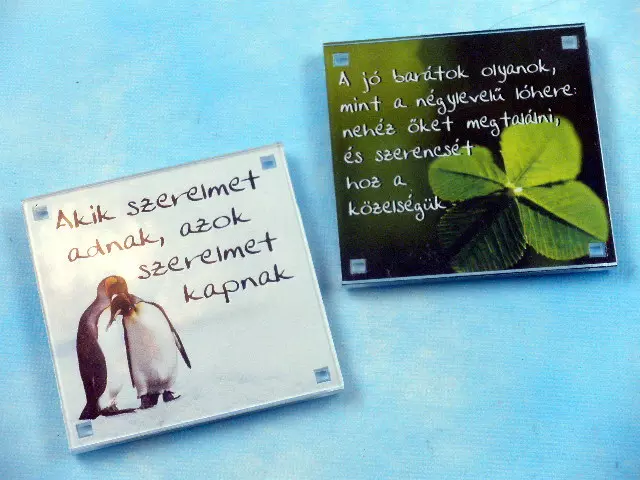 Akik szerelmet
adnak, azok
szerelmet
kapnak
A jó barátok olyanok,
mint a négylevelű lóhere:
nehéz őket megtalálni,
és szerencsét
hoz a
közelségük